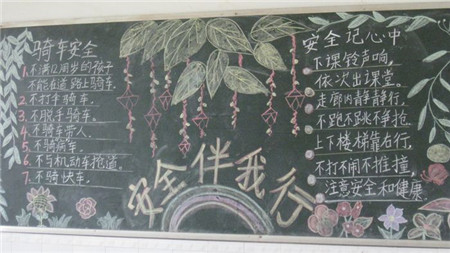 骑车安全
1.不满12周岁的孩子
不能在道路上骑车.
2.不打伞骑车.
3.不脱手骑车.
4.不骑车带人.
5.不骑病车.
6.不与机动车抢道.
7.不骑快车.
安全伴我行
安全记心中
下课铃声响,
依次出课堂.
走廊内静静行,
不跑不跳不争抢
上下楼梯靠右行,
不打不闹不推撞,
注意安全和健康